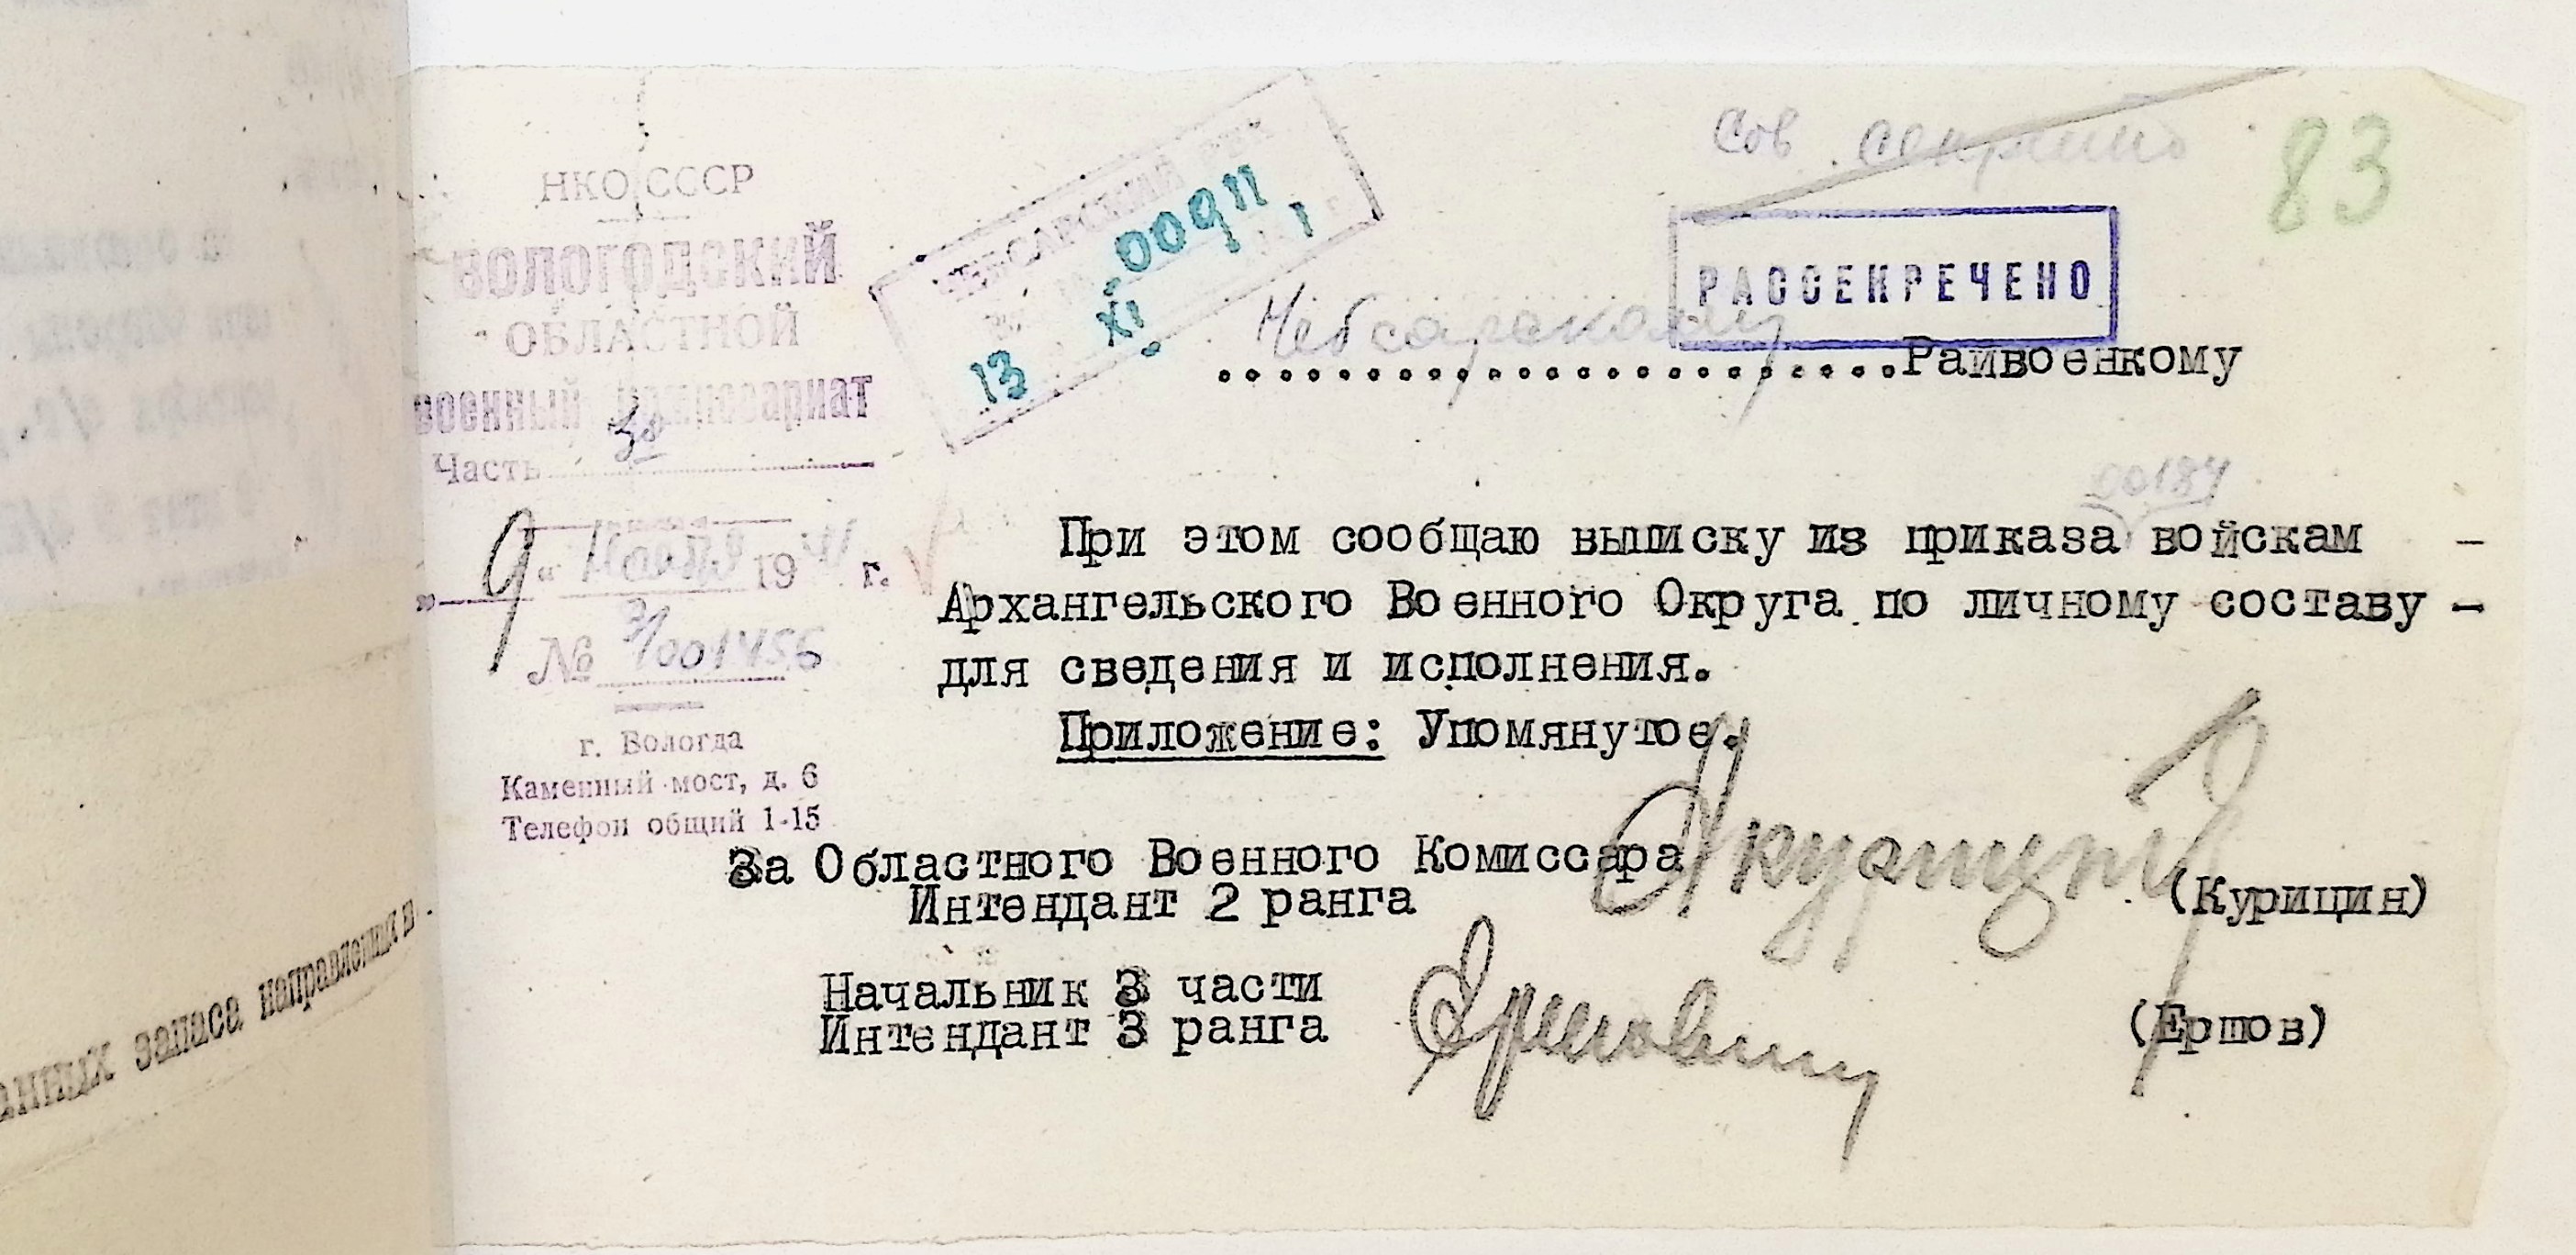 Сов. секретно
83
НКО СССР
ВОЛОГОДСКИЙ
ОБЛАСТНОЙ
военный комиссариат
Часть 3
"9" 1941 г.
№ 3/001456
г. Вологда
Каменный мост, д. 6
Телефон общий 1-15
ЧЕБСАРСКИЙ РВК
00911
13 XI
РАССЕКРЕЧЕНО
Чебсарскому
Райвоенкому
00184
При этом сообщаю выписку из приказа войскам -
Архангельского Военного Округа по личному составу -
для сведения и исполнения.
Приложение: Упомянутое.
За Областного Военного Комиссара
Интендант 2 ранга
(Курицин)
Начальник 3 части
Интендант 3 ранга
(Ершов)
анных запаса направлении в